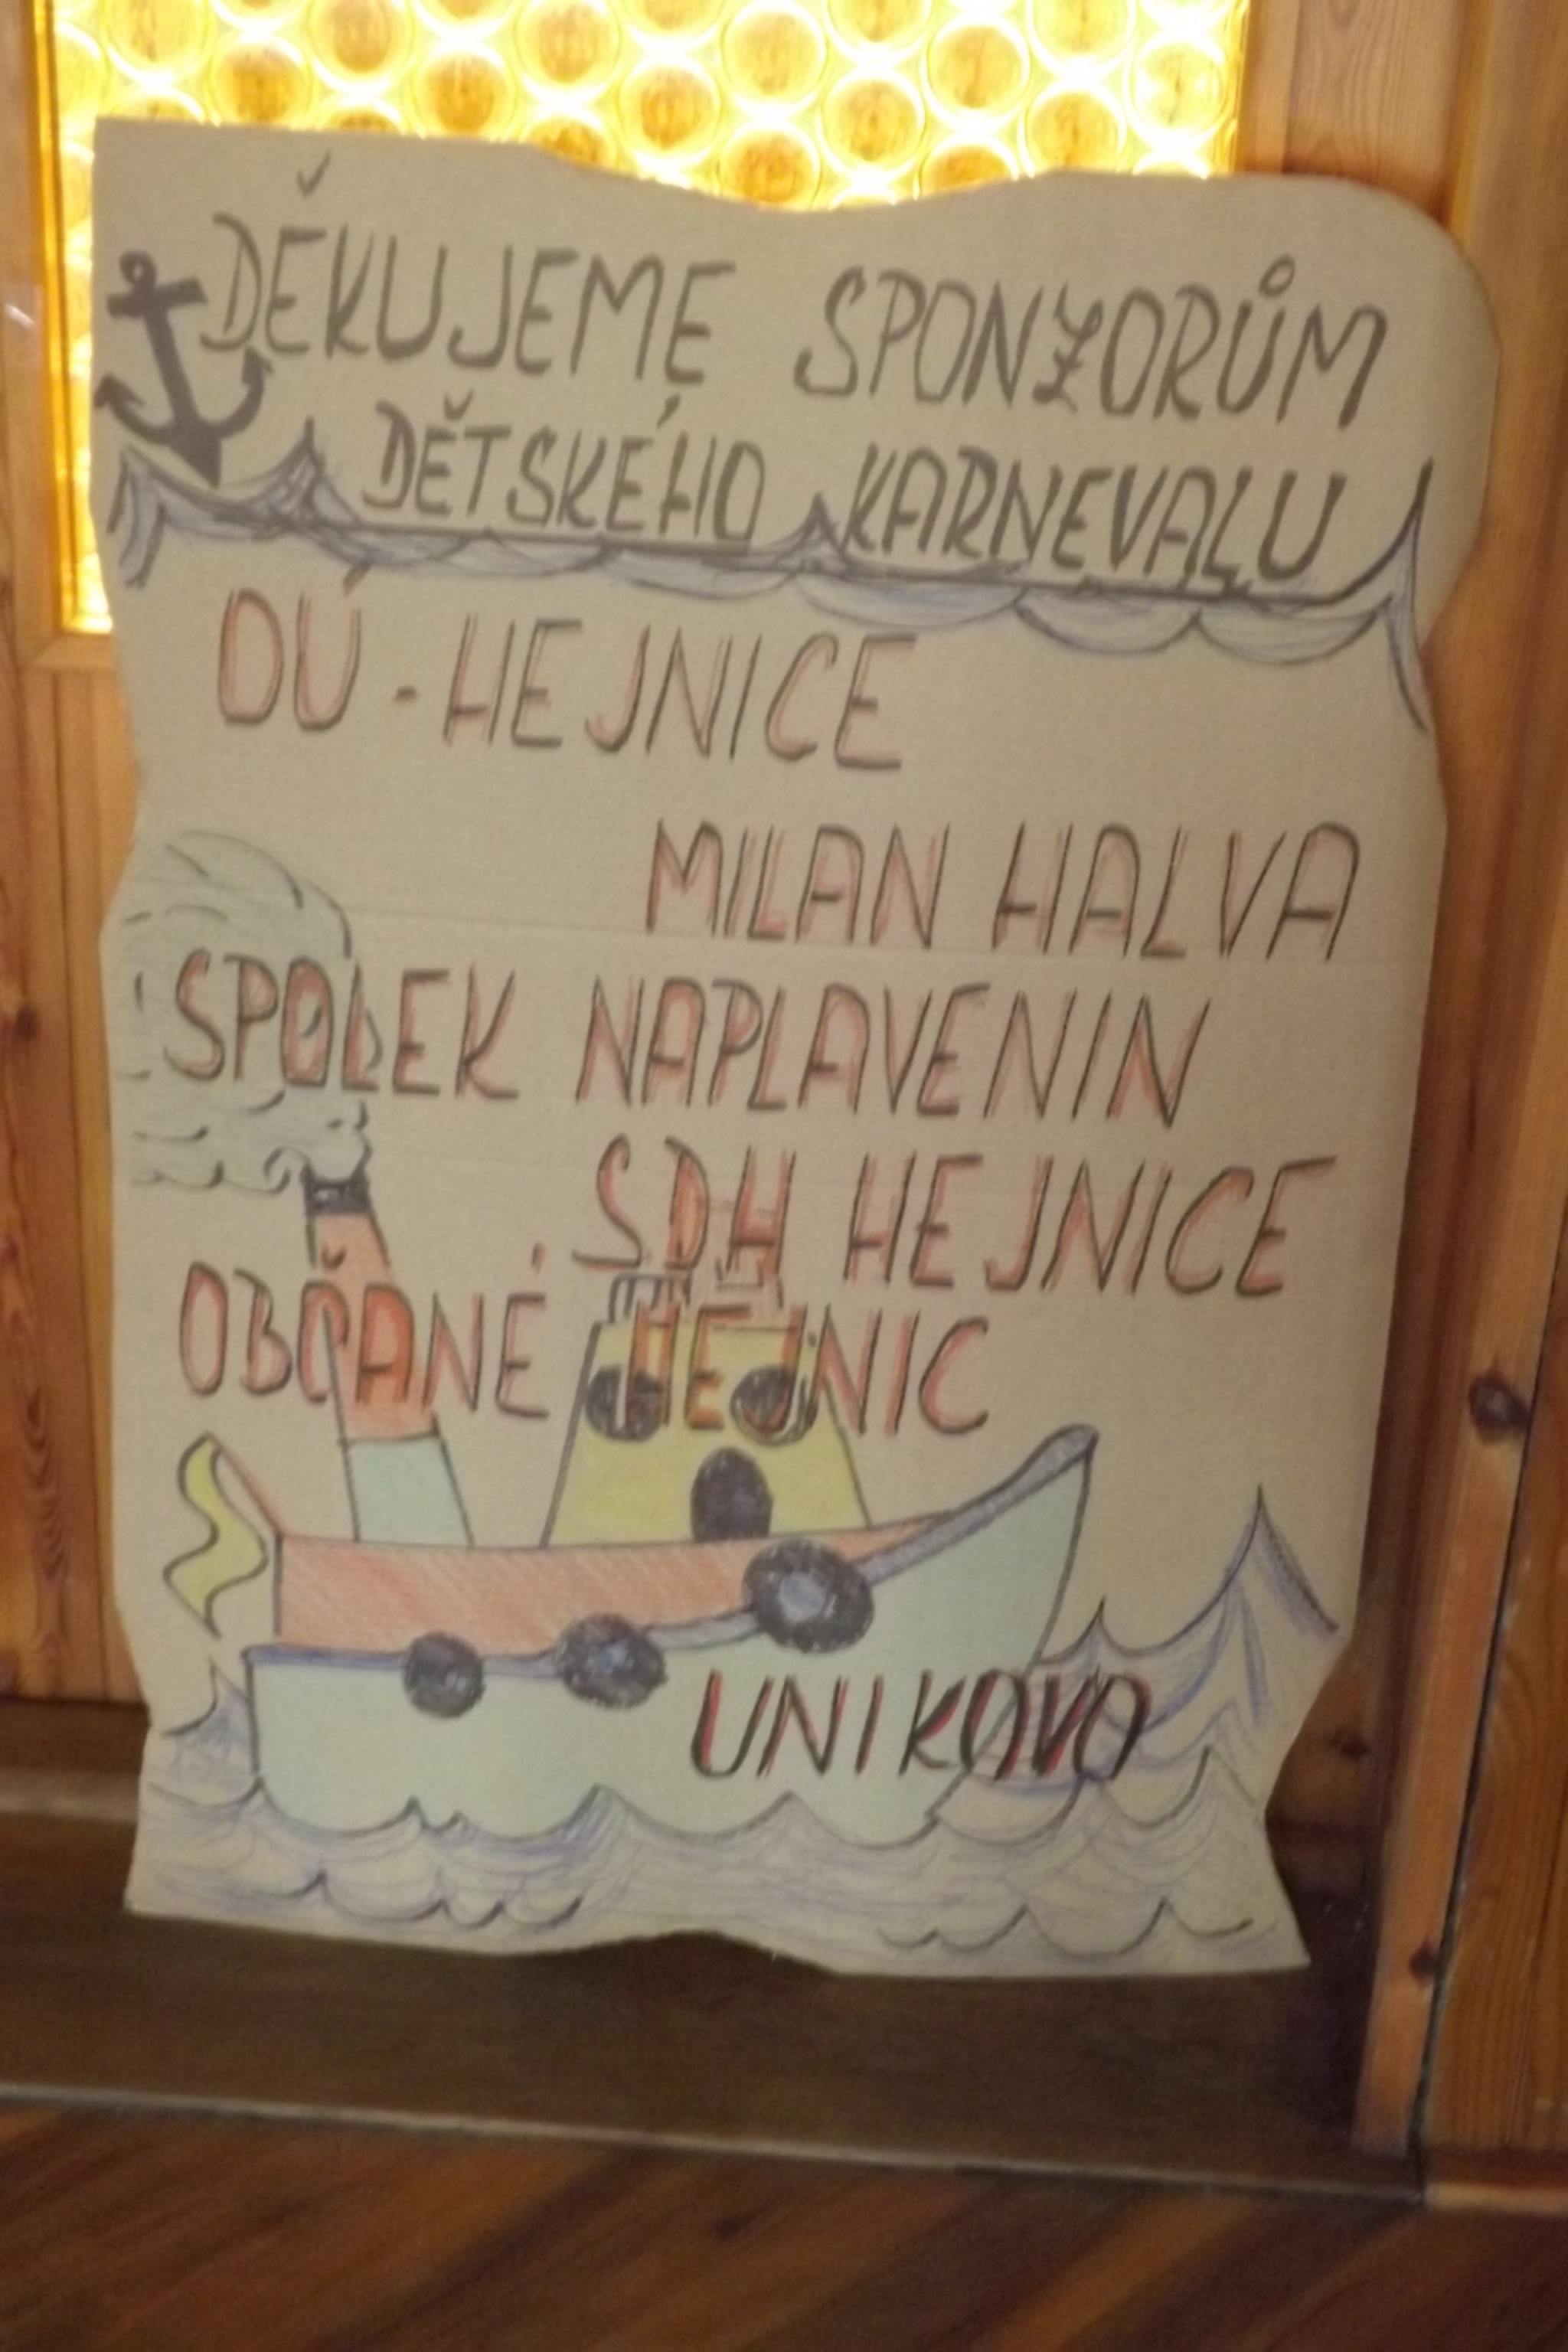 DĚKUJEME SPONZORŮM
DĚTSKÉHO KARNEVALU
OÚ - HEJNICE
MILAN HALVA
SPOLEK NAPLAVENIN
SDH HEJNICE
OBČANÉ HEJNIC
UNIKOVO